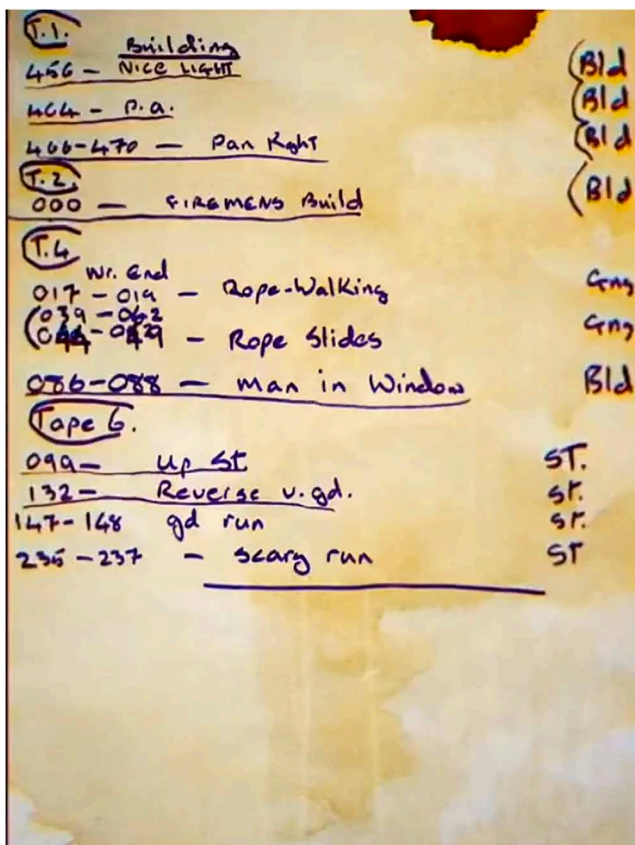 T.1.
Building
456 - NICE LIGHT Bld
464 - P.a. Bld
466-470 - Pan Right Bld
T.2.
000 - FIREMENS Build Bld
T.4
Wr. End
017 - 019 - Rope-Walking Gng
039 - 042
- Rope Slides Gng
086-088 - Man in Window Bld
Tape 6.
099- Up St ST.
132- Reverse v.gd. ST.
147-148 gd run ST.
235-237 - scary run ST